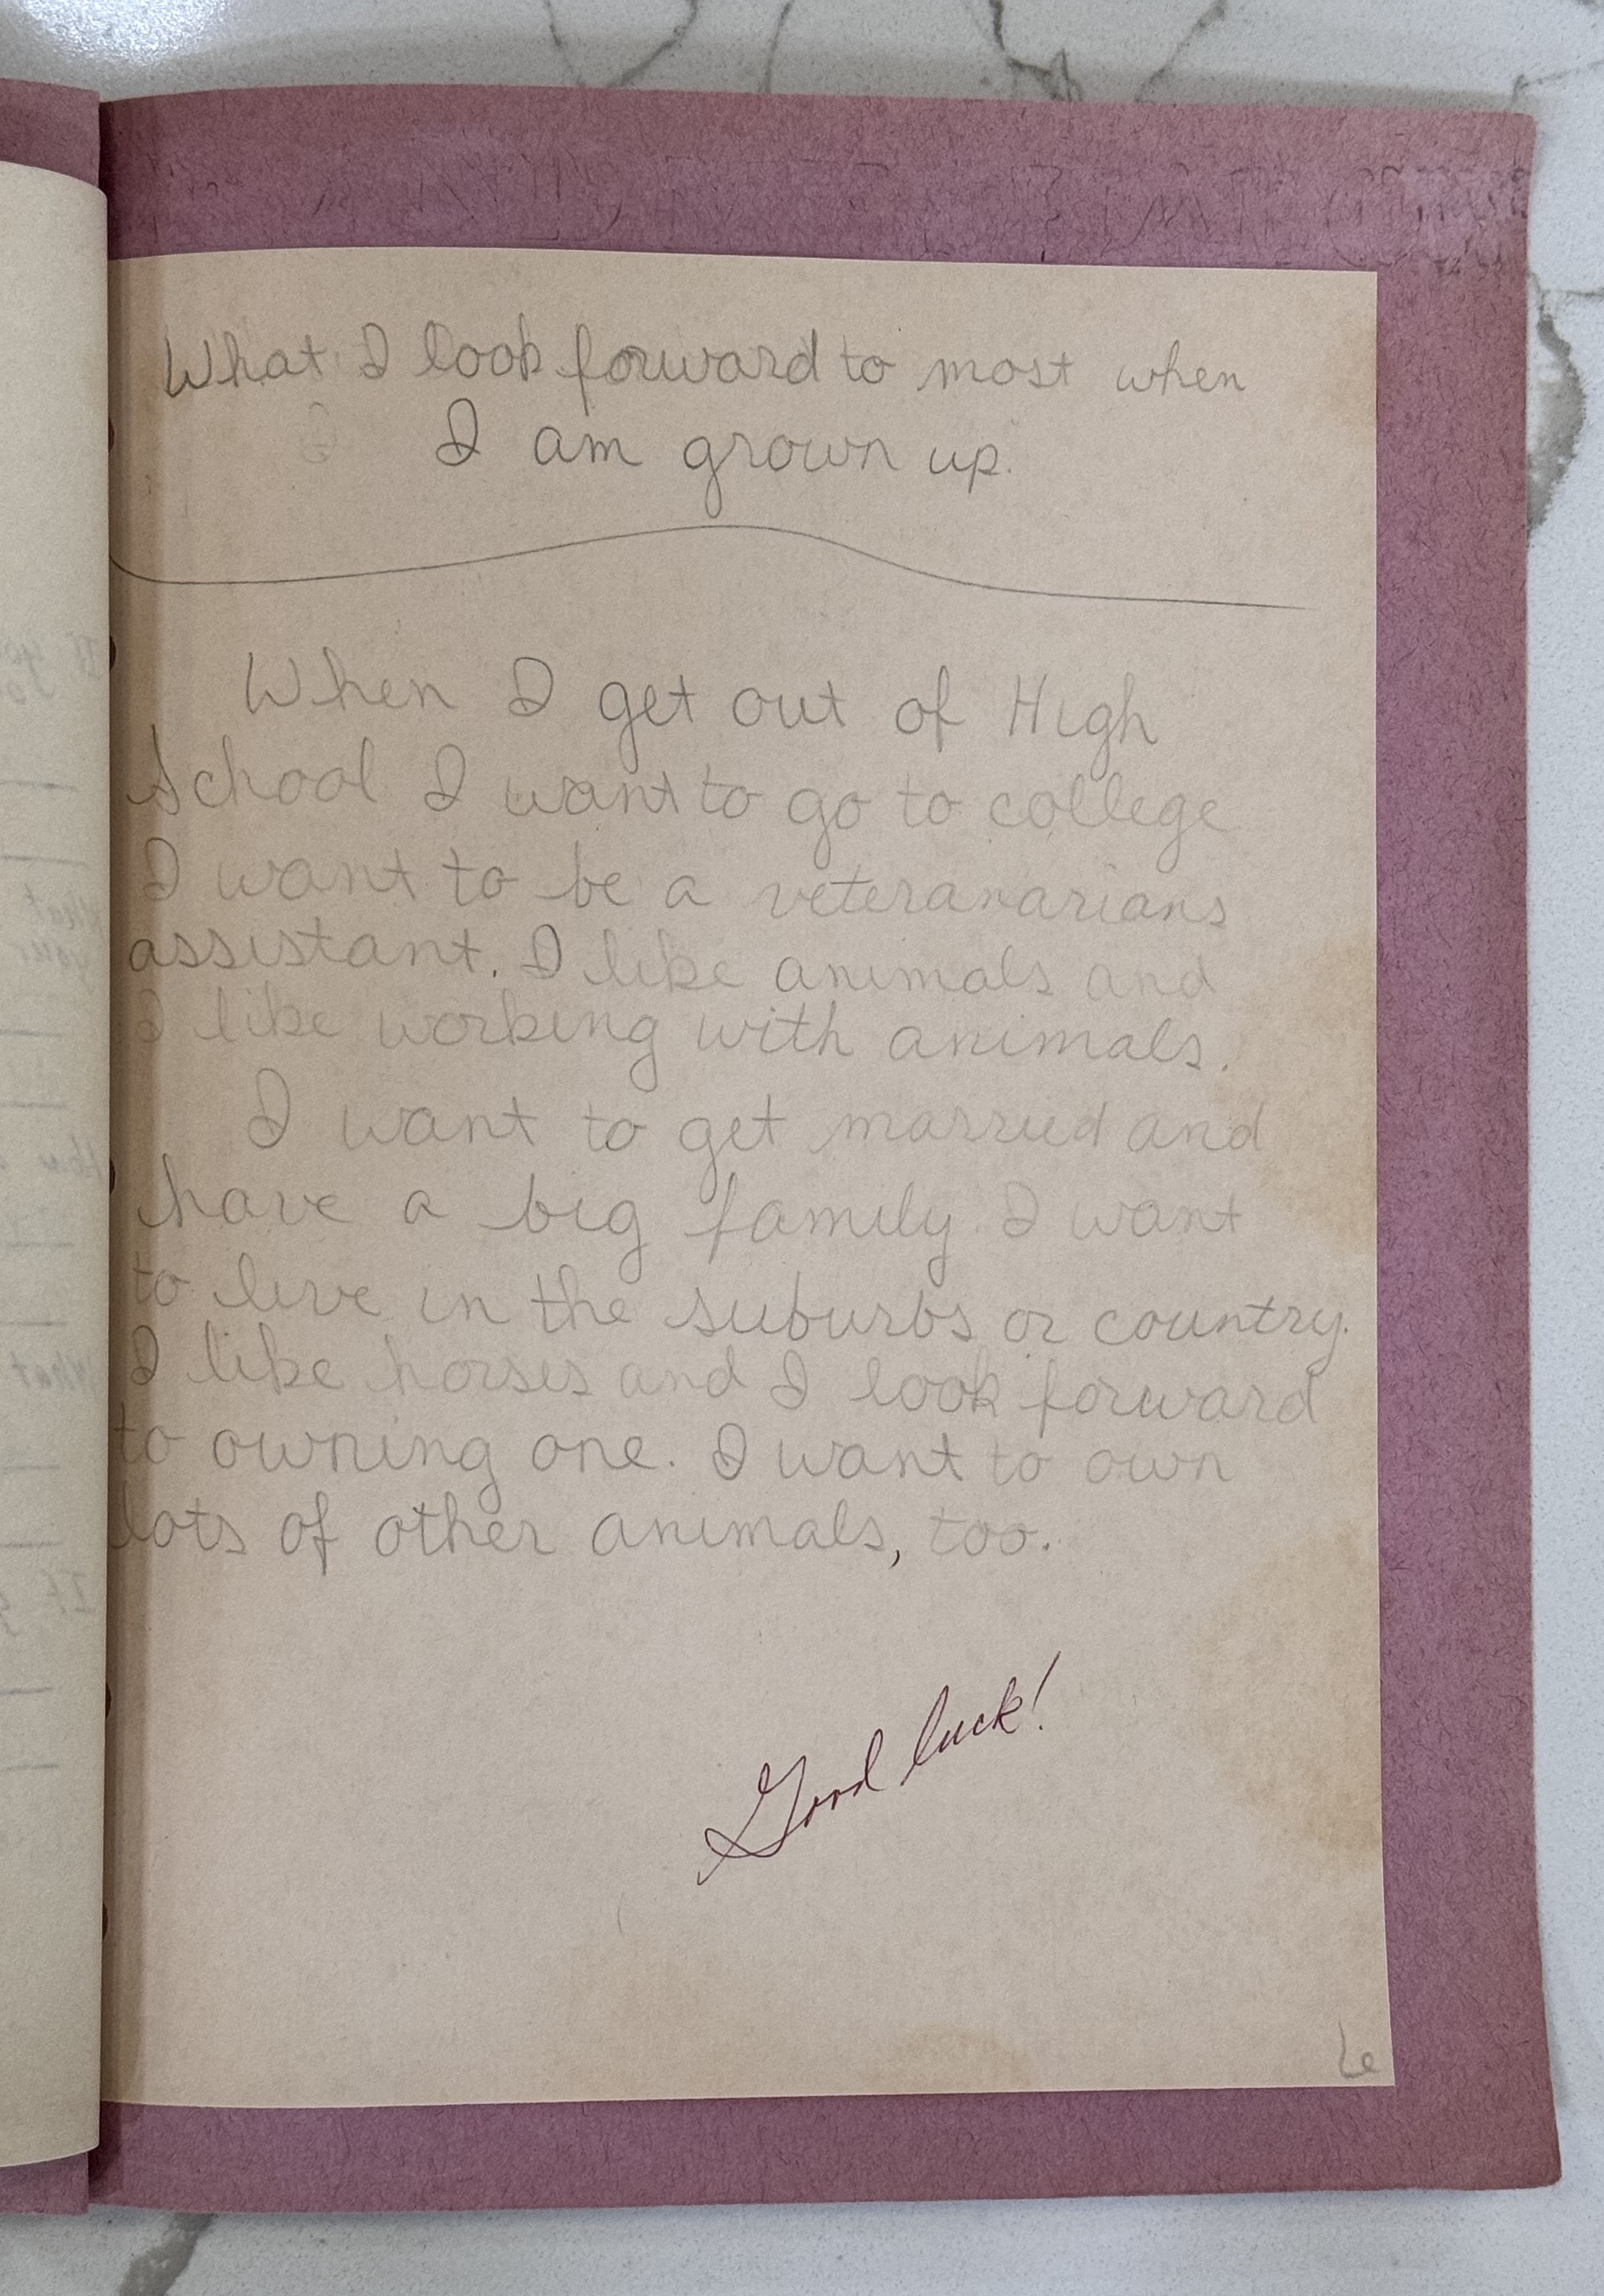 What I look forward to most when
I am grown up.
When I get out of High
School I want to go to college
I want to be a veteranarians
assistant. I like animals and
I like working with animals.
I want to get married and
have a big family. I want
to live in the suburbs or country.
I like horses and I look forward
to owning one. I want to own
lots of other animals, too.
Good luck!
6